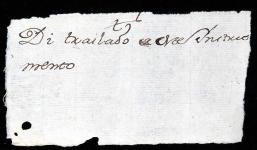 Di traslado a este instru
mento